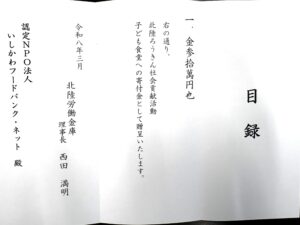 目録
一、金参拾萬円也
右の通り、
北陸ろうきん社会貢献活動
子ども食堂への寄付金として贈呈いたします。
令和八年三月
北陸労働金庫
理事長 西田 満明
認定NPO法人
いしかわフードバンク・ネット 殿